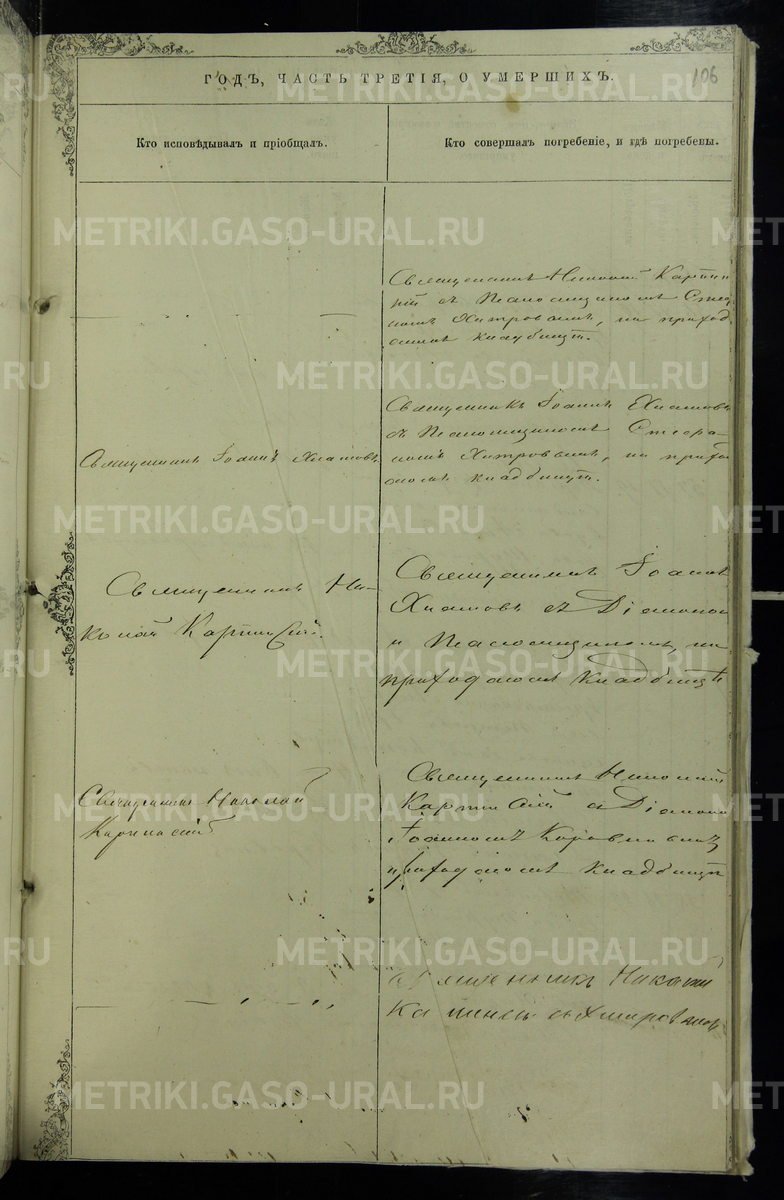 106
ГОДЪ, ЧАСТЬ ТРЕТІЯ, О УМЕРШИХЪ.
Кто исповѣдывалъ и пріобщалъ.
Кто совершалъ погребеніе, и гдѣ погребены.
METRIKI.GASO-URAL.RU
Священникъ Николай Карпин
скій съ Псаломщикомъ Стефа
номъ Хитровымъ, на приход
скомъ кладбищѣ.
Священникъ Іоаннъ Хлатовъ
Священникъ Іоаннъ Хлатовъ
съ Псаломщикомъ Стефа-
номъ Хитровымъ, на прихо
скомъ кладбищѣ.
Священникъ Ни-
колай Карпинскій.
Священникъ Іоаннъ
Хлатовъ съ Діакономъ
и Псаломщикомъ, на
приходскомъ кладбищѣ
Священникъ Николай
Карпинскій
Священникъ Николай
Карпинскій съ Діакono
Іоанномъ
приходскомъ кладбищѣ
Николай